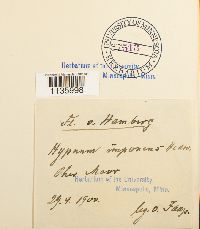 UNIVERSITY OF MINNESOTA
Herbarium of the University
Minneapolis, Minn.
1135998
Fl. v. Hamburg
Hypnum imponens
Moor
Herbarium of the University
Minneapolis, Minn.
29.4.1900.
leg. O. Jaap.